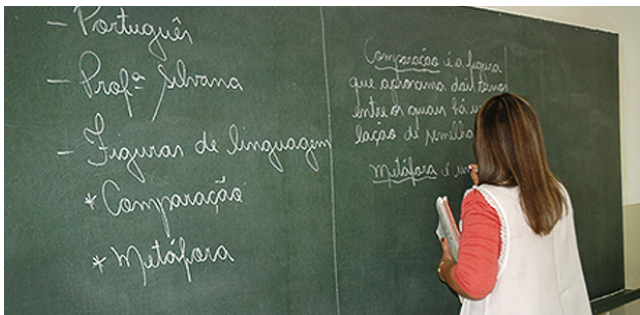 - Português
- Profª Silvana
- Figuras de linguagem
* Comparação
* Metáfora
Comparação é a figura
que aproxima dois termos
entre os quais há
lação de semelha
Metáfora é